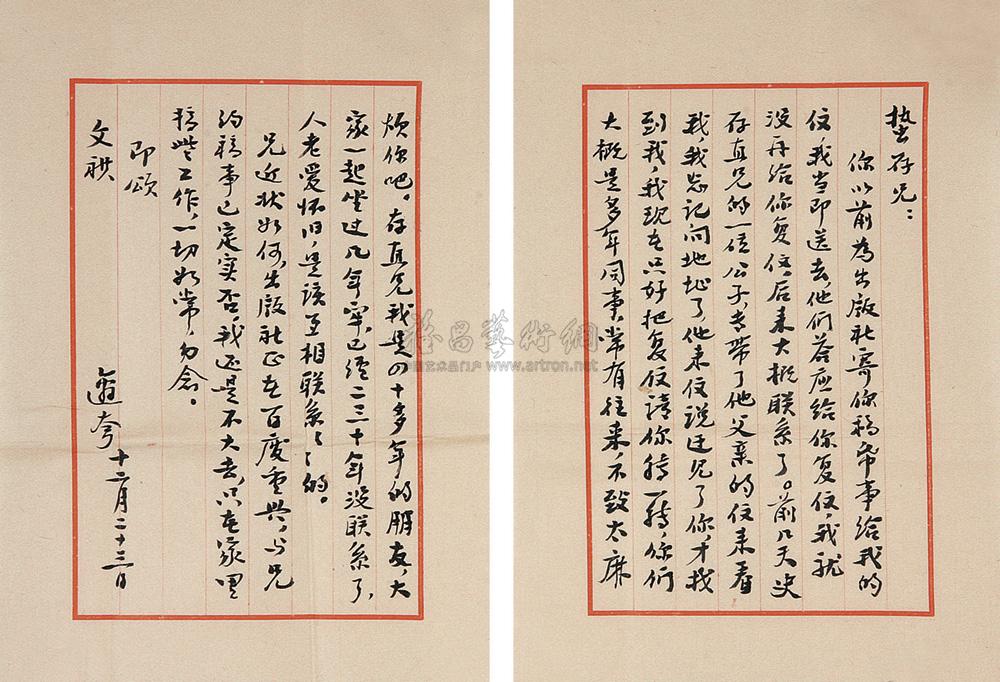 蛰存兄：
你以前为出版社寄你稿希事给我的
信，我当即送去，他们答应给你复信，我就
没再给你复信，后来大概联系了。前几天史
存直兄的一位公子，专带了他父亲的信来看
我，我忘记问地址了，他来信说迁见了你，才找
到我，我现在只好把复信请你转一转，你们
大概是多年同事，常有往来，不致太麻
烦你吧。存直兄我是四十多年的朋友，大
家一起坐过几年牢，已经二三十年没联系了，
人老爱怀旧，是该互相联系联系的。
兄近状如何，出版社正在百废重兴，与兄
约稿事已定实否，我还是不大去，只在家里
搞些工作，一切如常，勿念。
即颂
文祺
适夸 十二月二十三日
卷昌藝術網
中国艺术品门户 www.artron.net